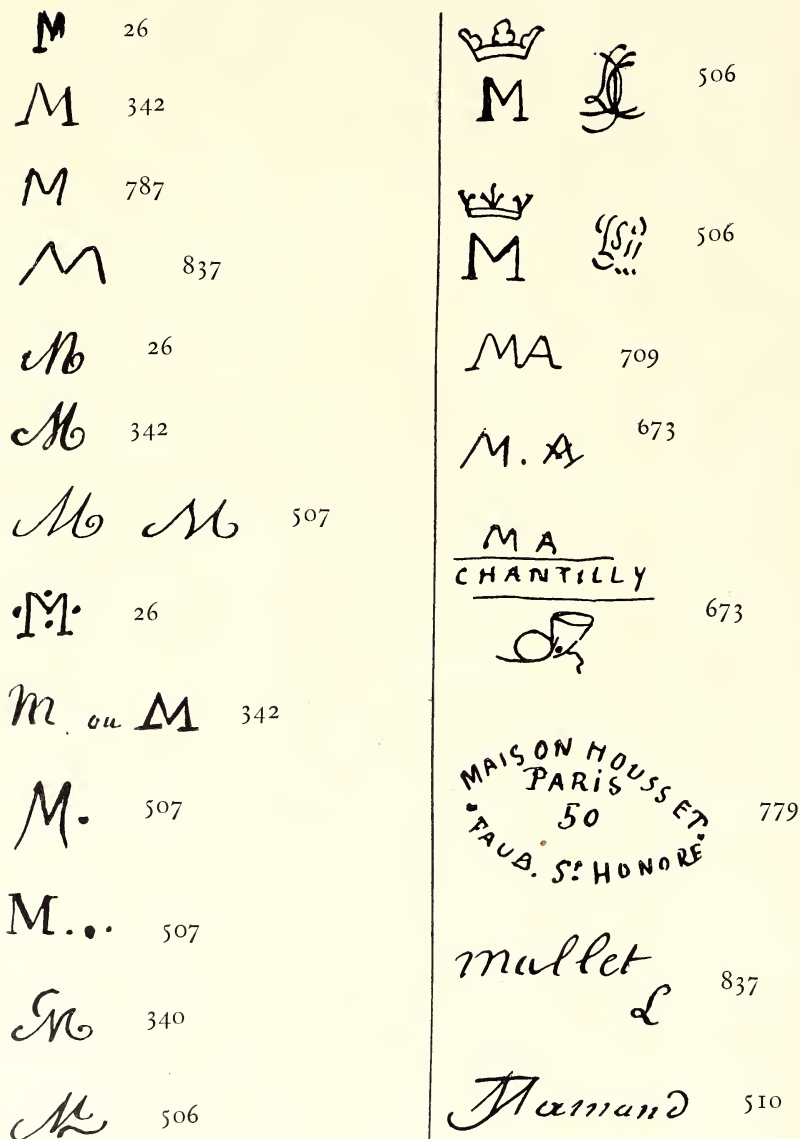 M 26
M 342
M 787
M 837
M 26
M 342
M M 507
·M· 26
M. ou M 342
M. 507
M... 507
M 340
M 506
M 506
M 506
MA 709
M. A 673
M A
CHANTILLY
673
MAISON HOUSSET
PARIS
50
FAUB. St HONORÉ
779
mallet
L
837
Mamand 510